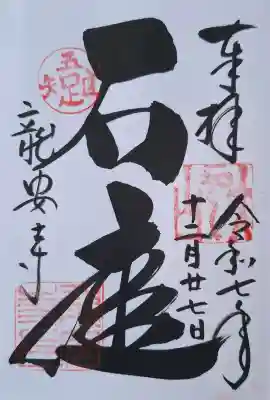 奉拝
令和七年
十二月廿七日
石庭
龍安寺